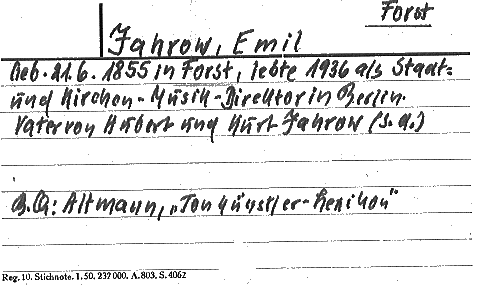 Forst
Jahrow, Emil
Geb. 21.6. 1855 in Forst, lebte 1936 als Staat=
und Kirchen-Musik-Direktor in Berlin.
Vater von Hubert und Kurt Jahrow (s.d.)
B.Qu: Altmann, „Tonkünstler-Lexikon"
Reg. 10. Stichnote. 1. 50. 232000. A. 803. S. 4062